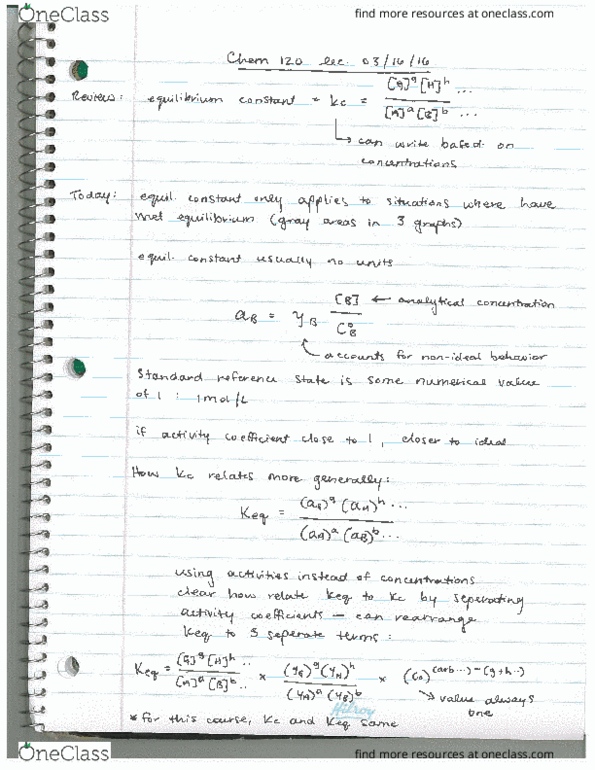 OneClass
find more resources at oneclass.com
Chem 120 lec. 03/16/16
Review: equilibrium constant = Kc = [G]^g [H]^h ... / [A]^a [B]^b ...
↳ can write based on
concentrations
Today: equil. constant only applies to situations where have
met equilibrium (gray areas in 3 graphs)
equil. constant usually no units
a_B = γ_B [B] / C°_B ← analytical concentration
accounts for non-ideal behavior
Standard reference state is some numerical value
of 1 : 1 mol/L
if activity coefficient close to 1, closer to ideal
How Kc relates more generally:
Keq = (a_G)^g (a_H)^h ... / (a_A)^a (a_B)^b ...
using activities instead of concentrations
clear how relate Keq to Kc by seperating
activity coefficients — can rearrange
Keq to 3 seperate terms:
Keq = [G]^g [H]^h .. / [A]^a [B]^b .. × (γ_G)^g (γ_H)^h / (γ_A)^a (γ_B)^b × (C_0)^(a+b...)-(g+h..)
→ value always
one
Hilroy
* for this course, Kc and Keq same
OneClass
find more resources at oneclass.com